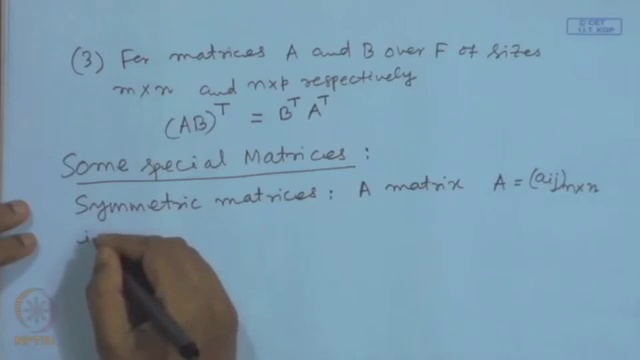 © CET
I.I.T. KGP
(3) For matrices A and B over F of sizes
m×n and n×p respectively
(AB)^T = B^T A^T
Some special Matrices :
Symmetric matrices : A matrix A = (aij)n×n
i
NPTEL